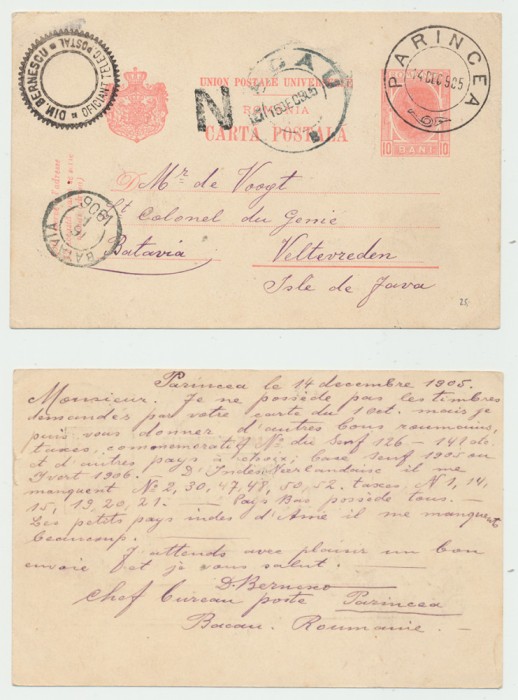 DIM. BERNESCU
OFICIANT TELEG. POSTAL
UNION POSTALE UNIVERSELLE
ROMANIA
CARTA POSTALA
N
BACAU
15 DEC 905
PARINCEA
14 DEC 905
10 BANI 10
Mr de Voogt
Lt Colonel du Genie
Batavia Veltevreden
Isle de Java
BATAVIA
1906
25
Parincea le 14 decembre 1905.
Monsieur. Je ne possède pas les timbres
demandés par votre carte du 1 Oct. mais je
puis vous donner d'autres bons roumains,
taxes, commemoratif No du Senf 126 - 141 etc.
et d'autres pays à choix; base Senf 1905 ou
Yvert 1906. D'Indes Neerlandaise il me
manquent No 2, 30, 47, 48, 50, 52. taxes, N 1, 14,
15, 19, 20, 21. — Pays Bas possède tous. —
Les petits pays indes d'Asie il me manquent
beaucoup. —
J'attends avec plaisir un bon
envoie et je vous salut.
D. Bernesco
Chef bureau poste Parincea
Bacau. Roumanie. —